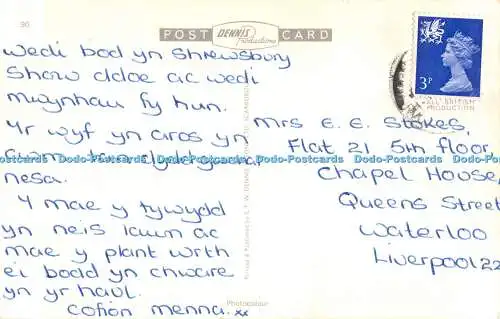 96
POST DENNIS Productions CARD
Wedi bod yn Shrewsbury
Show ddoe ac wedi
mwynhau fy hun.
Yr wyf yn aros yn
nesa.
Y mae y tywydd
yn neis iawn ac
mae y plant wrth
ei bodd yn chware
yn yr haul.
Cofion Menna. xx
3P
ALL BRITISH
PRODUCTION
Mrs E. E. Stokes,
Flat 21 5th floor,
Chapel House,
Queens Street
Waterloo
Liverpool 22
Photocolour
Dodo-Postcards Dodo-Postcards Dodo-Postcards Dodo-Postcards Dodo-Postcards Dodo-Postcards